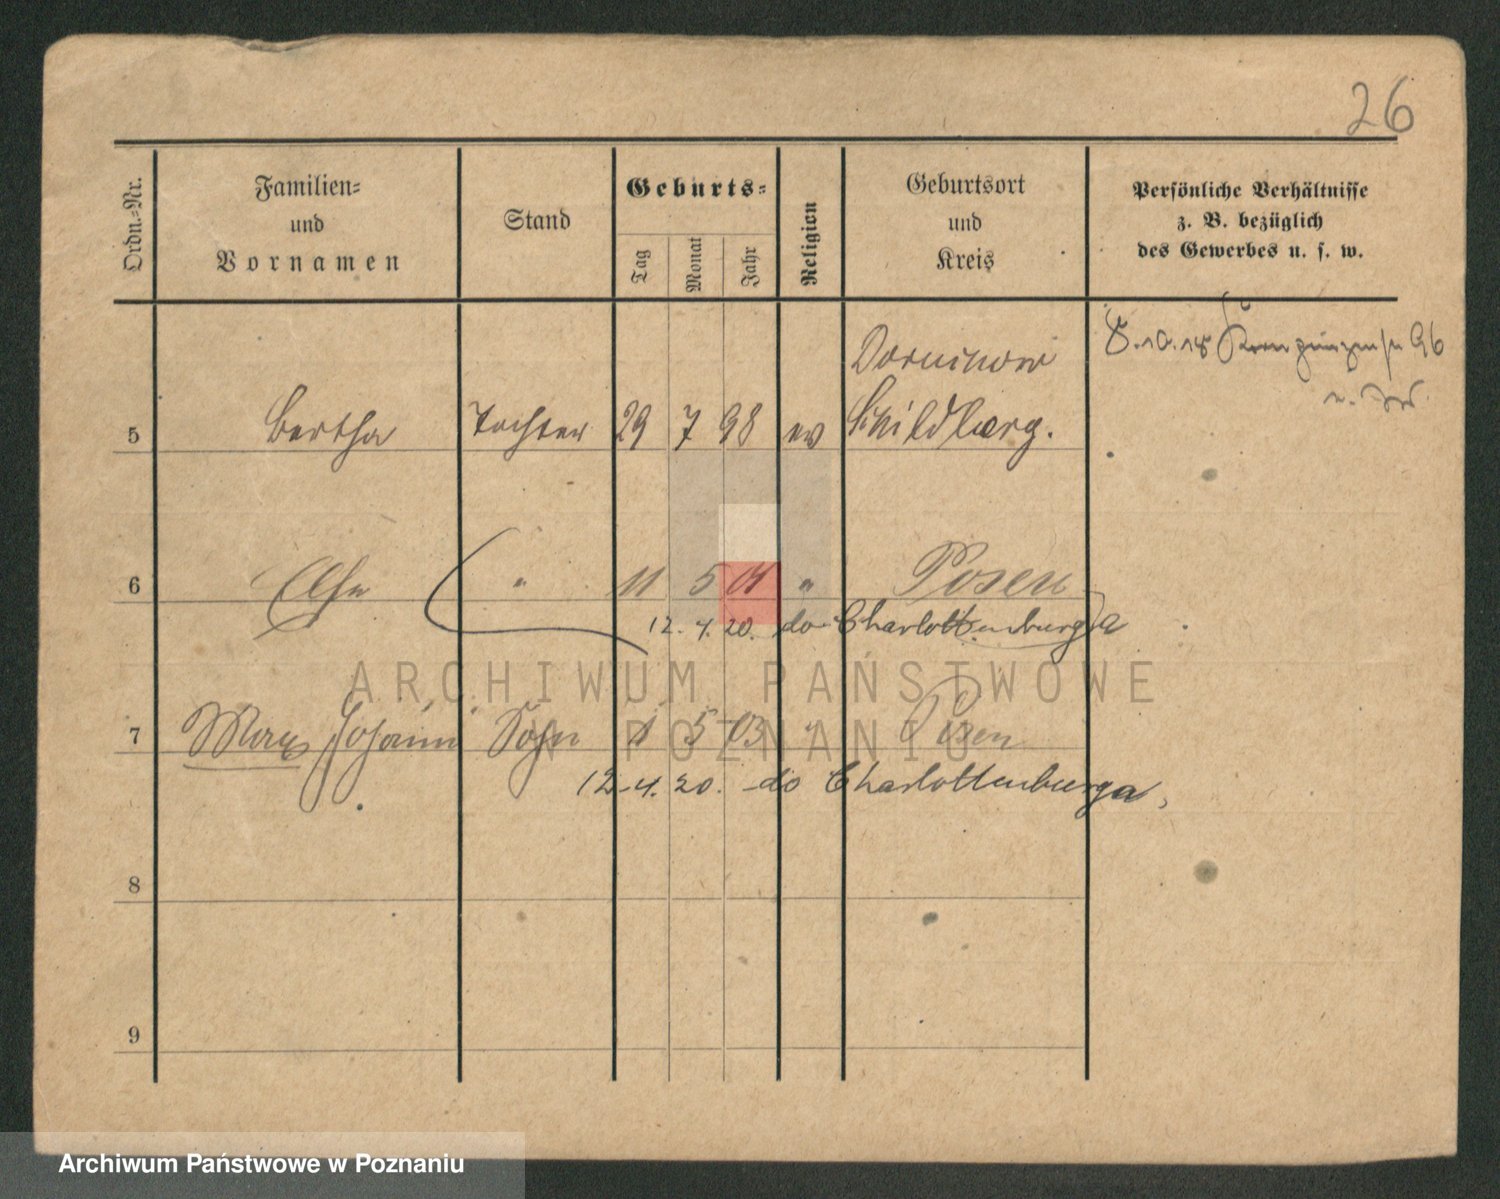 26
Ordn.-Nr.
Familien-
und
Vornamen
Stand
Geburts-
Tag
Monat
Jahr
Religion
Geburtsort
und
Kreis
Persönliche Verhältnisse
z. B. bezüglich
des Gewerbes u. s. w.
8.10.18 96
5 Bertha Tochter 29 7 98 ev Schildberg.
6 Else " 11 5 01 " Posen
12.4.20. do Charlottenburga
ARCHIWUM PAŃSTWOWE
W POZNANIU
7 Max Johann Sohn 1 5 03 " Posen
12.4.20. do Charlottenburga,
8
9
Archiwum Państwowe w Poznaniu